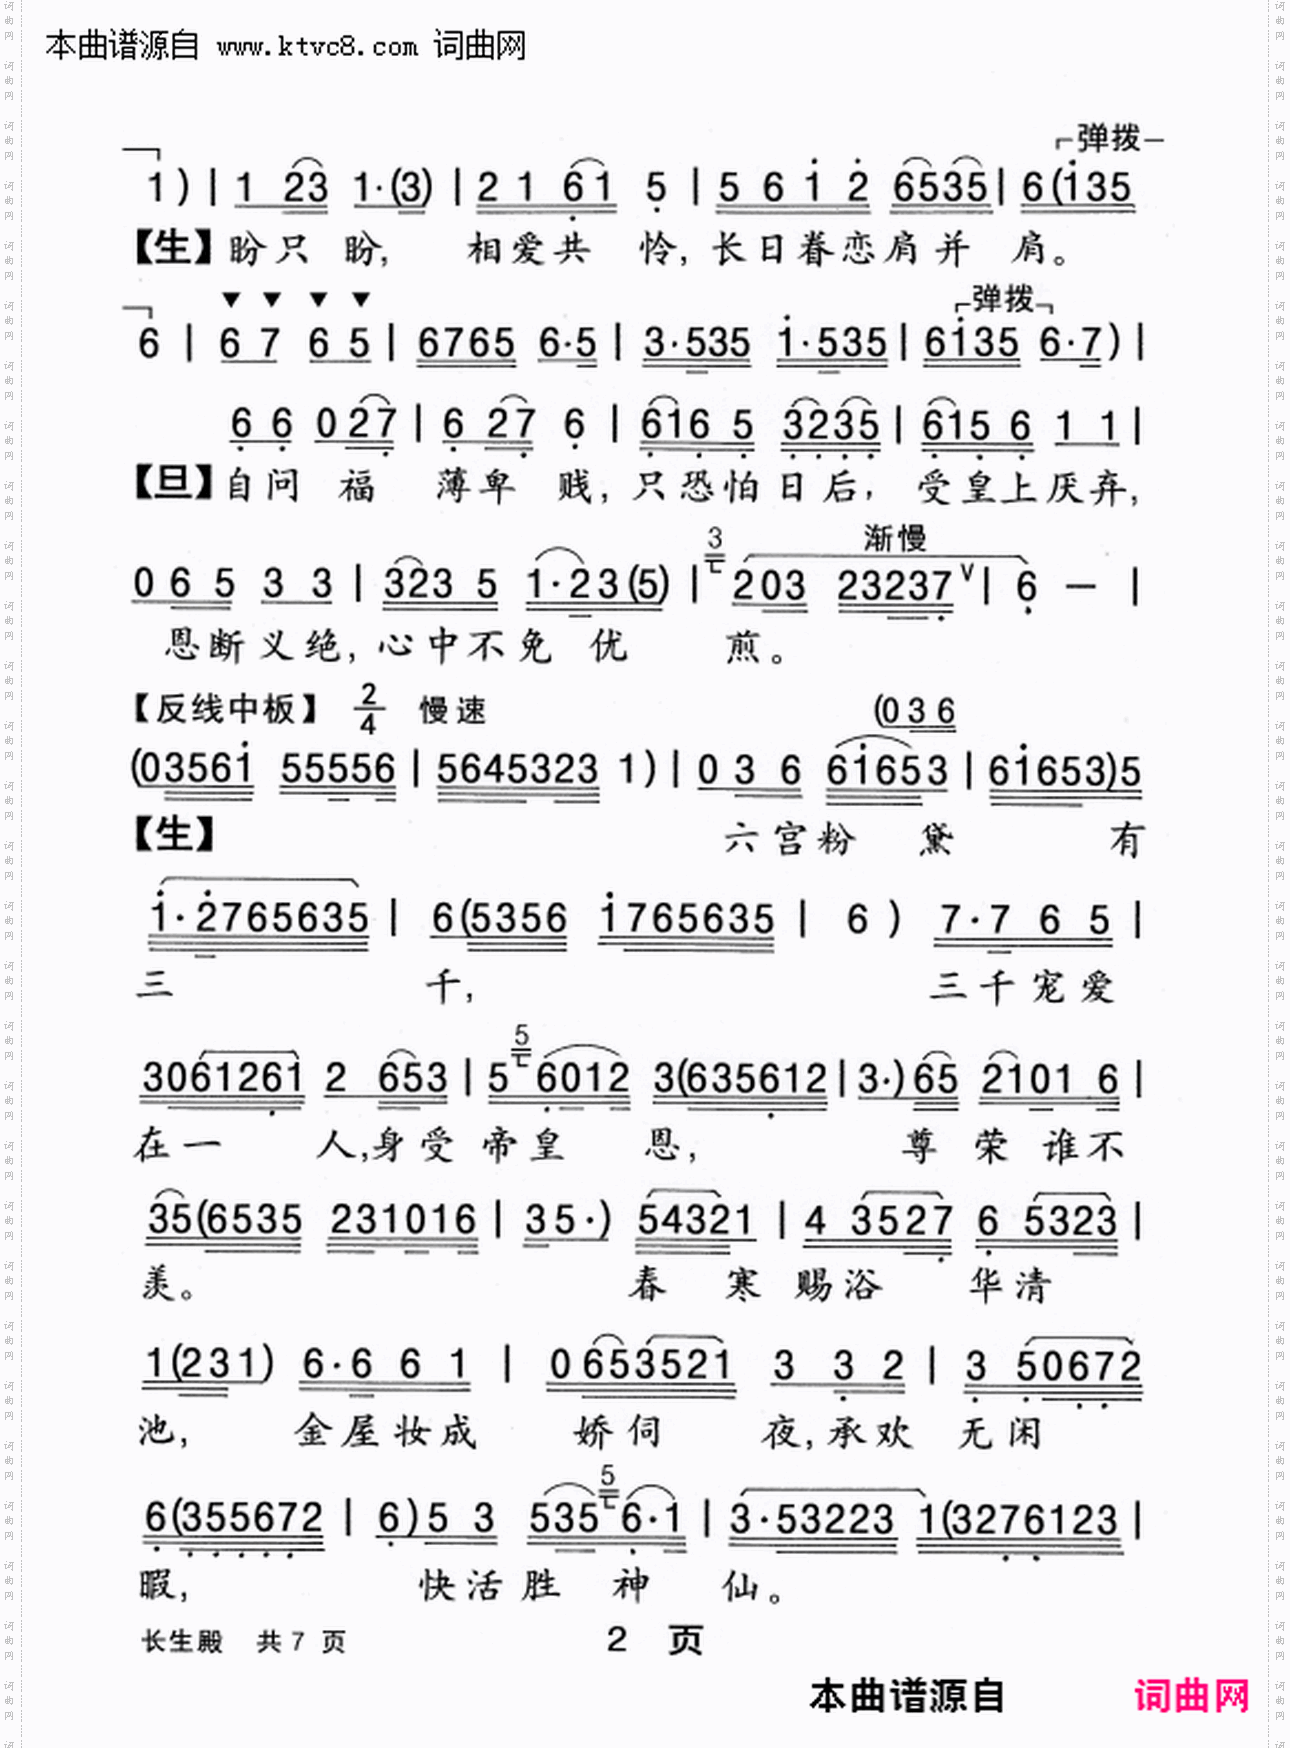 本曲谱源自 www.ktvc8.com 词曲网
弹拨
1) | 1 23 1·(3) | 2 1 61 5 | 5 6 1 2 6535 | 6(135
【生】盼只 盼, 相爱共 怜, 长日眷恋肩并 肩。
弹拨
6 | 6 7 6 5 | 6765 6·5 | 3·535 1·535 | 6135 6·7) |
6 6 0 27 | 6 27 6 | 616 5 3235 | 615 6 1 1 |
【旦】自问 福 薄卑 贱, 只恐怕日后, 受皇上厌弃,
3 渐慢
0 6 5 3 3 | 323 5 1·23(5) | 203 23237 V | 6 — |
恩断义绝, 心中不免 优 煎。
【反线中板】 2/4 慢速 (036
(03561 55556 | 5645323 1) | 0 3 6 61653 | 61653)5
【生】 六宫粉 黛 有
1·2765635 | 6(5356 1765635 | 6) 7·7 6 5 |
三 千, 三千宠爱
5
3061261 2 653 | 5 6012 3(635612 | 3·) 65 2101 6 |
在一 人,身受 帝皇 恩, 尊 荣 谁不
35(6535 231016 | 35·) 54321 | 4 3527 6 5323 |
羡。 春 寒 赐浴 华清
1(231) 6·6 6 1 | 0653521 3 3 2 | 3 50672
池, 金屋妆成 娇伺 夜,承欢 无闲
5
6(355672 | 6)5 3 535 6·1 | 3·53223 1(3276123 |
暇, 快活胜 神 仙。
长生殿 共7 页 2 页
本曲谱源自 词曲网